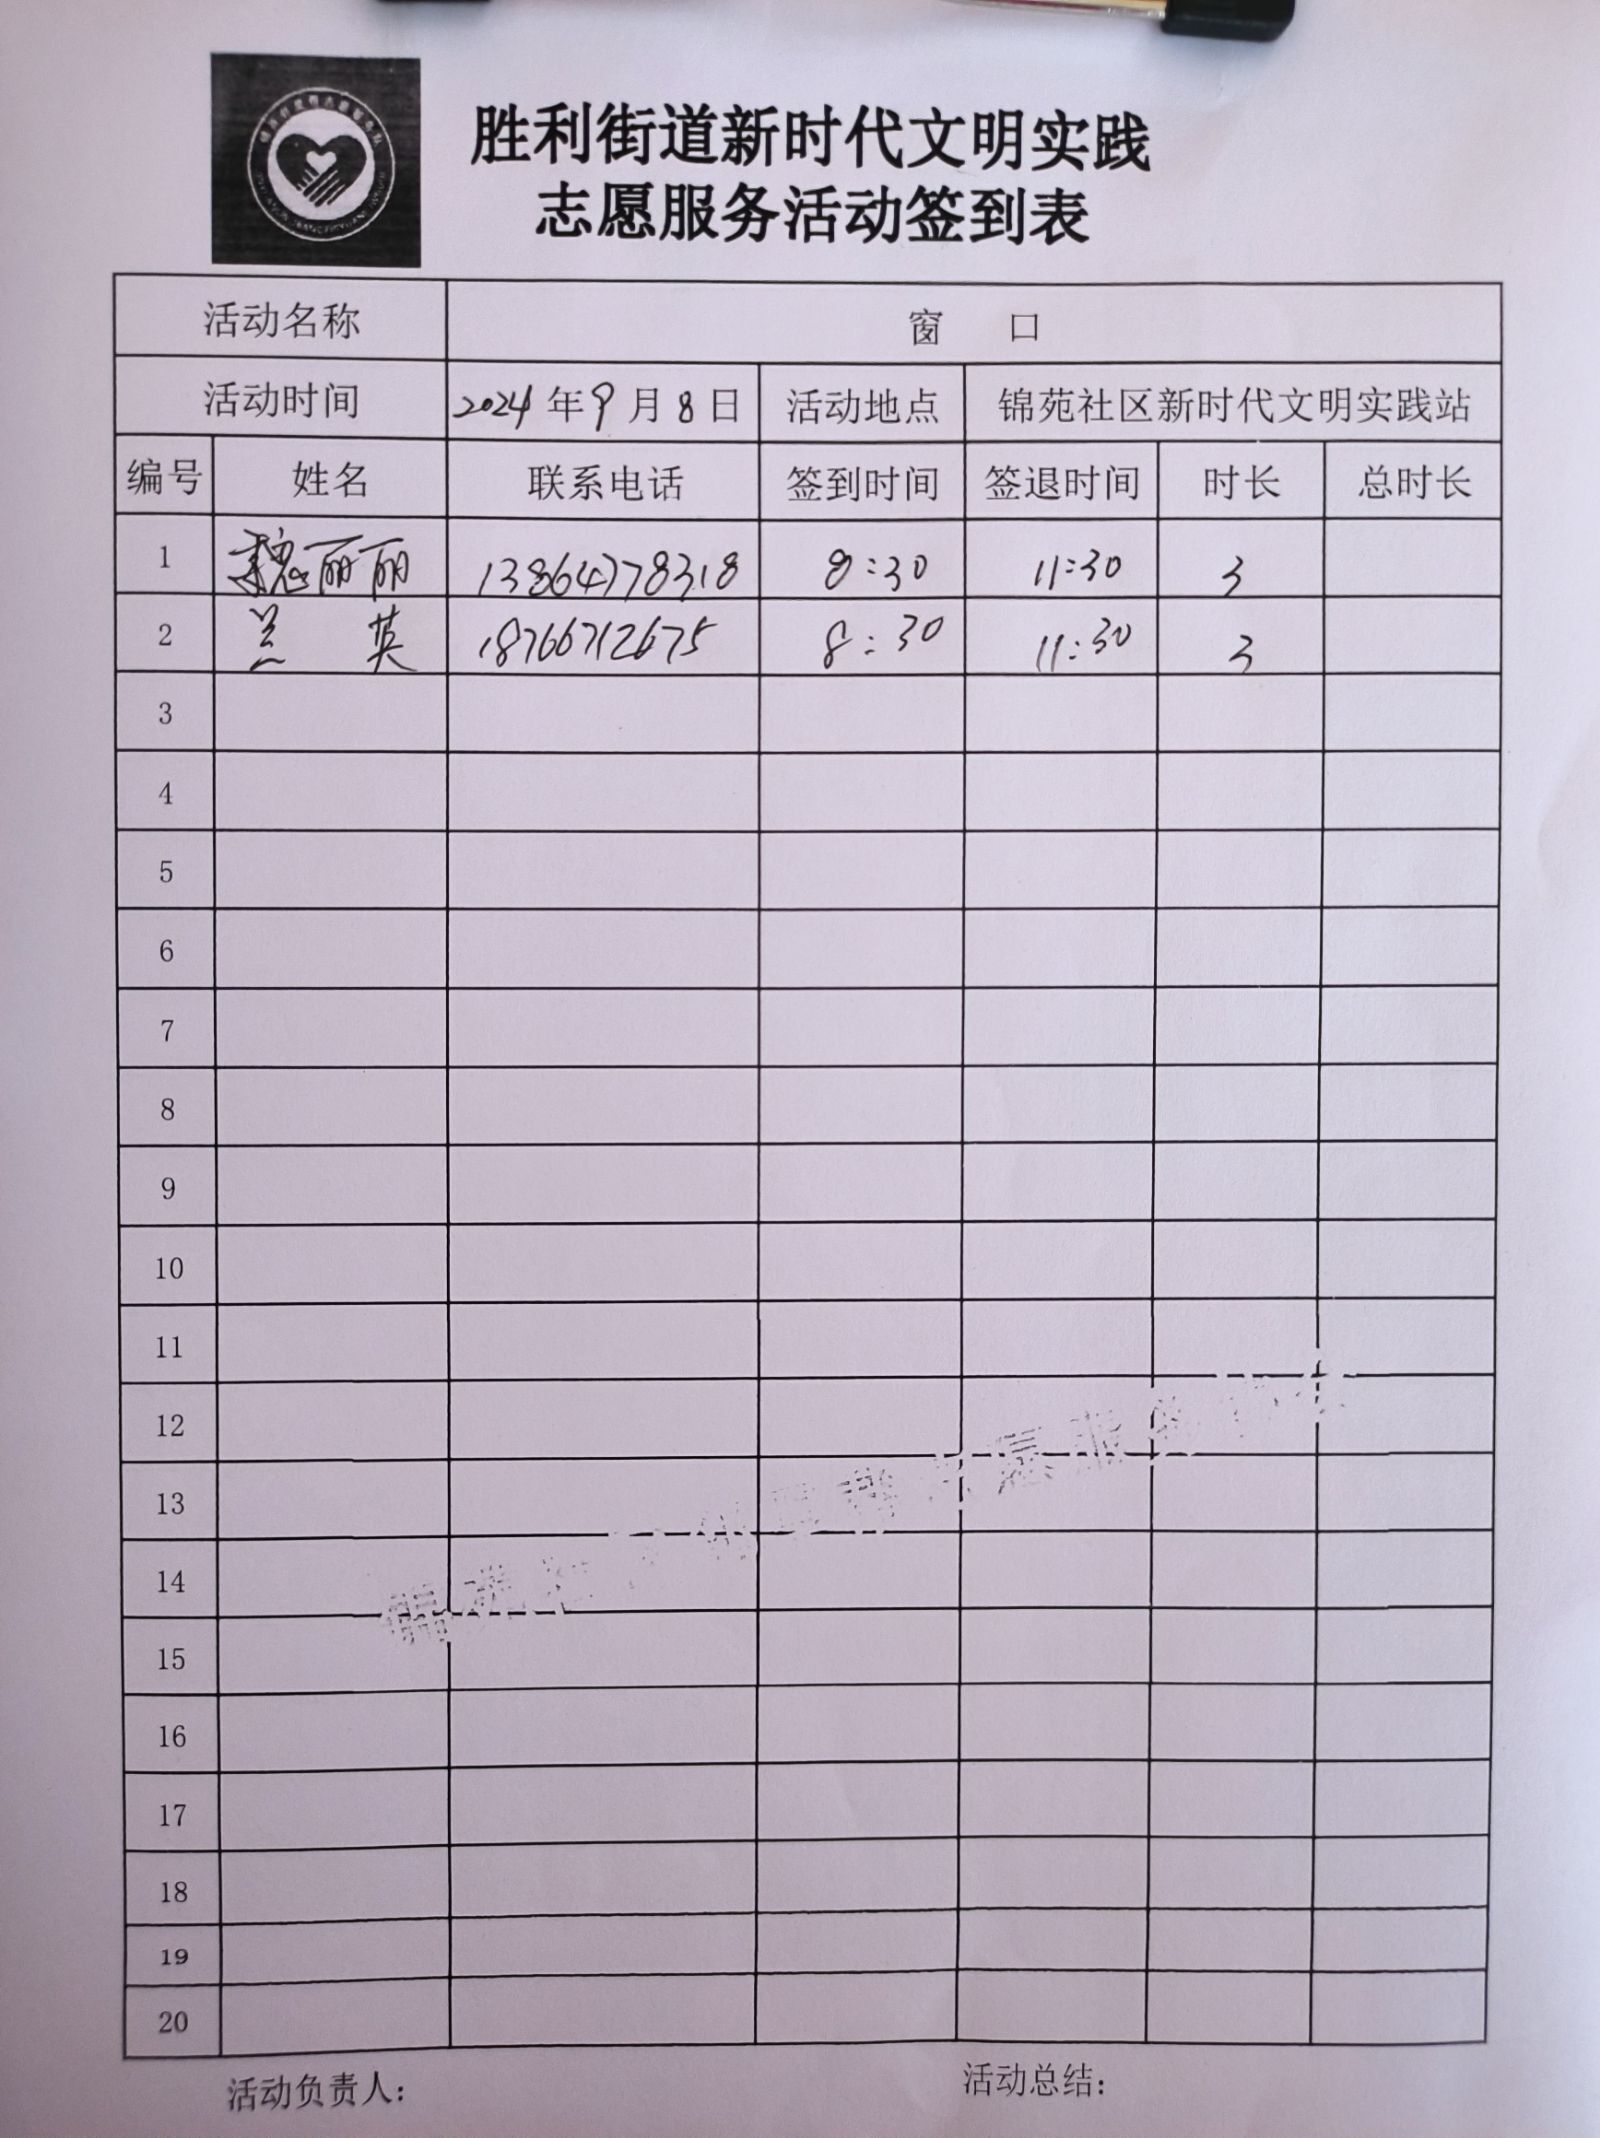 胜利街道新时代文明实践
志愿服务活动签到表
活动名称 窗 口
活动时间 2024年9月8日 活动地点 锦苑社区新时代文明实践站
编号 姓名 联系电话 签到时间 签退时间 时长 总时长
1 魏丽丽 13864778318 8:30 11:30 3
2 兰英 18766712675 8:30 11:30 3
3
4
5
6
7
8
9
10
11
12
13
14
15
16
17
18
19
20
活动负责人： 活动总结：